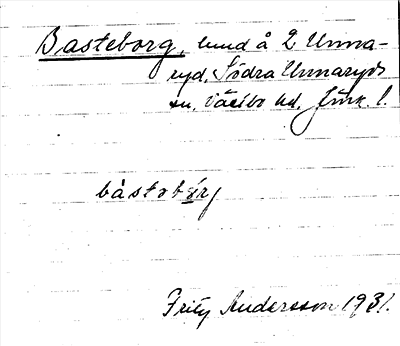 Basteborg, lund å 2 Unna-
ryd, Södra Unnaryds
sn. Västbo hd. Jönk. l.
Fritz Andersson 1931.